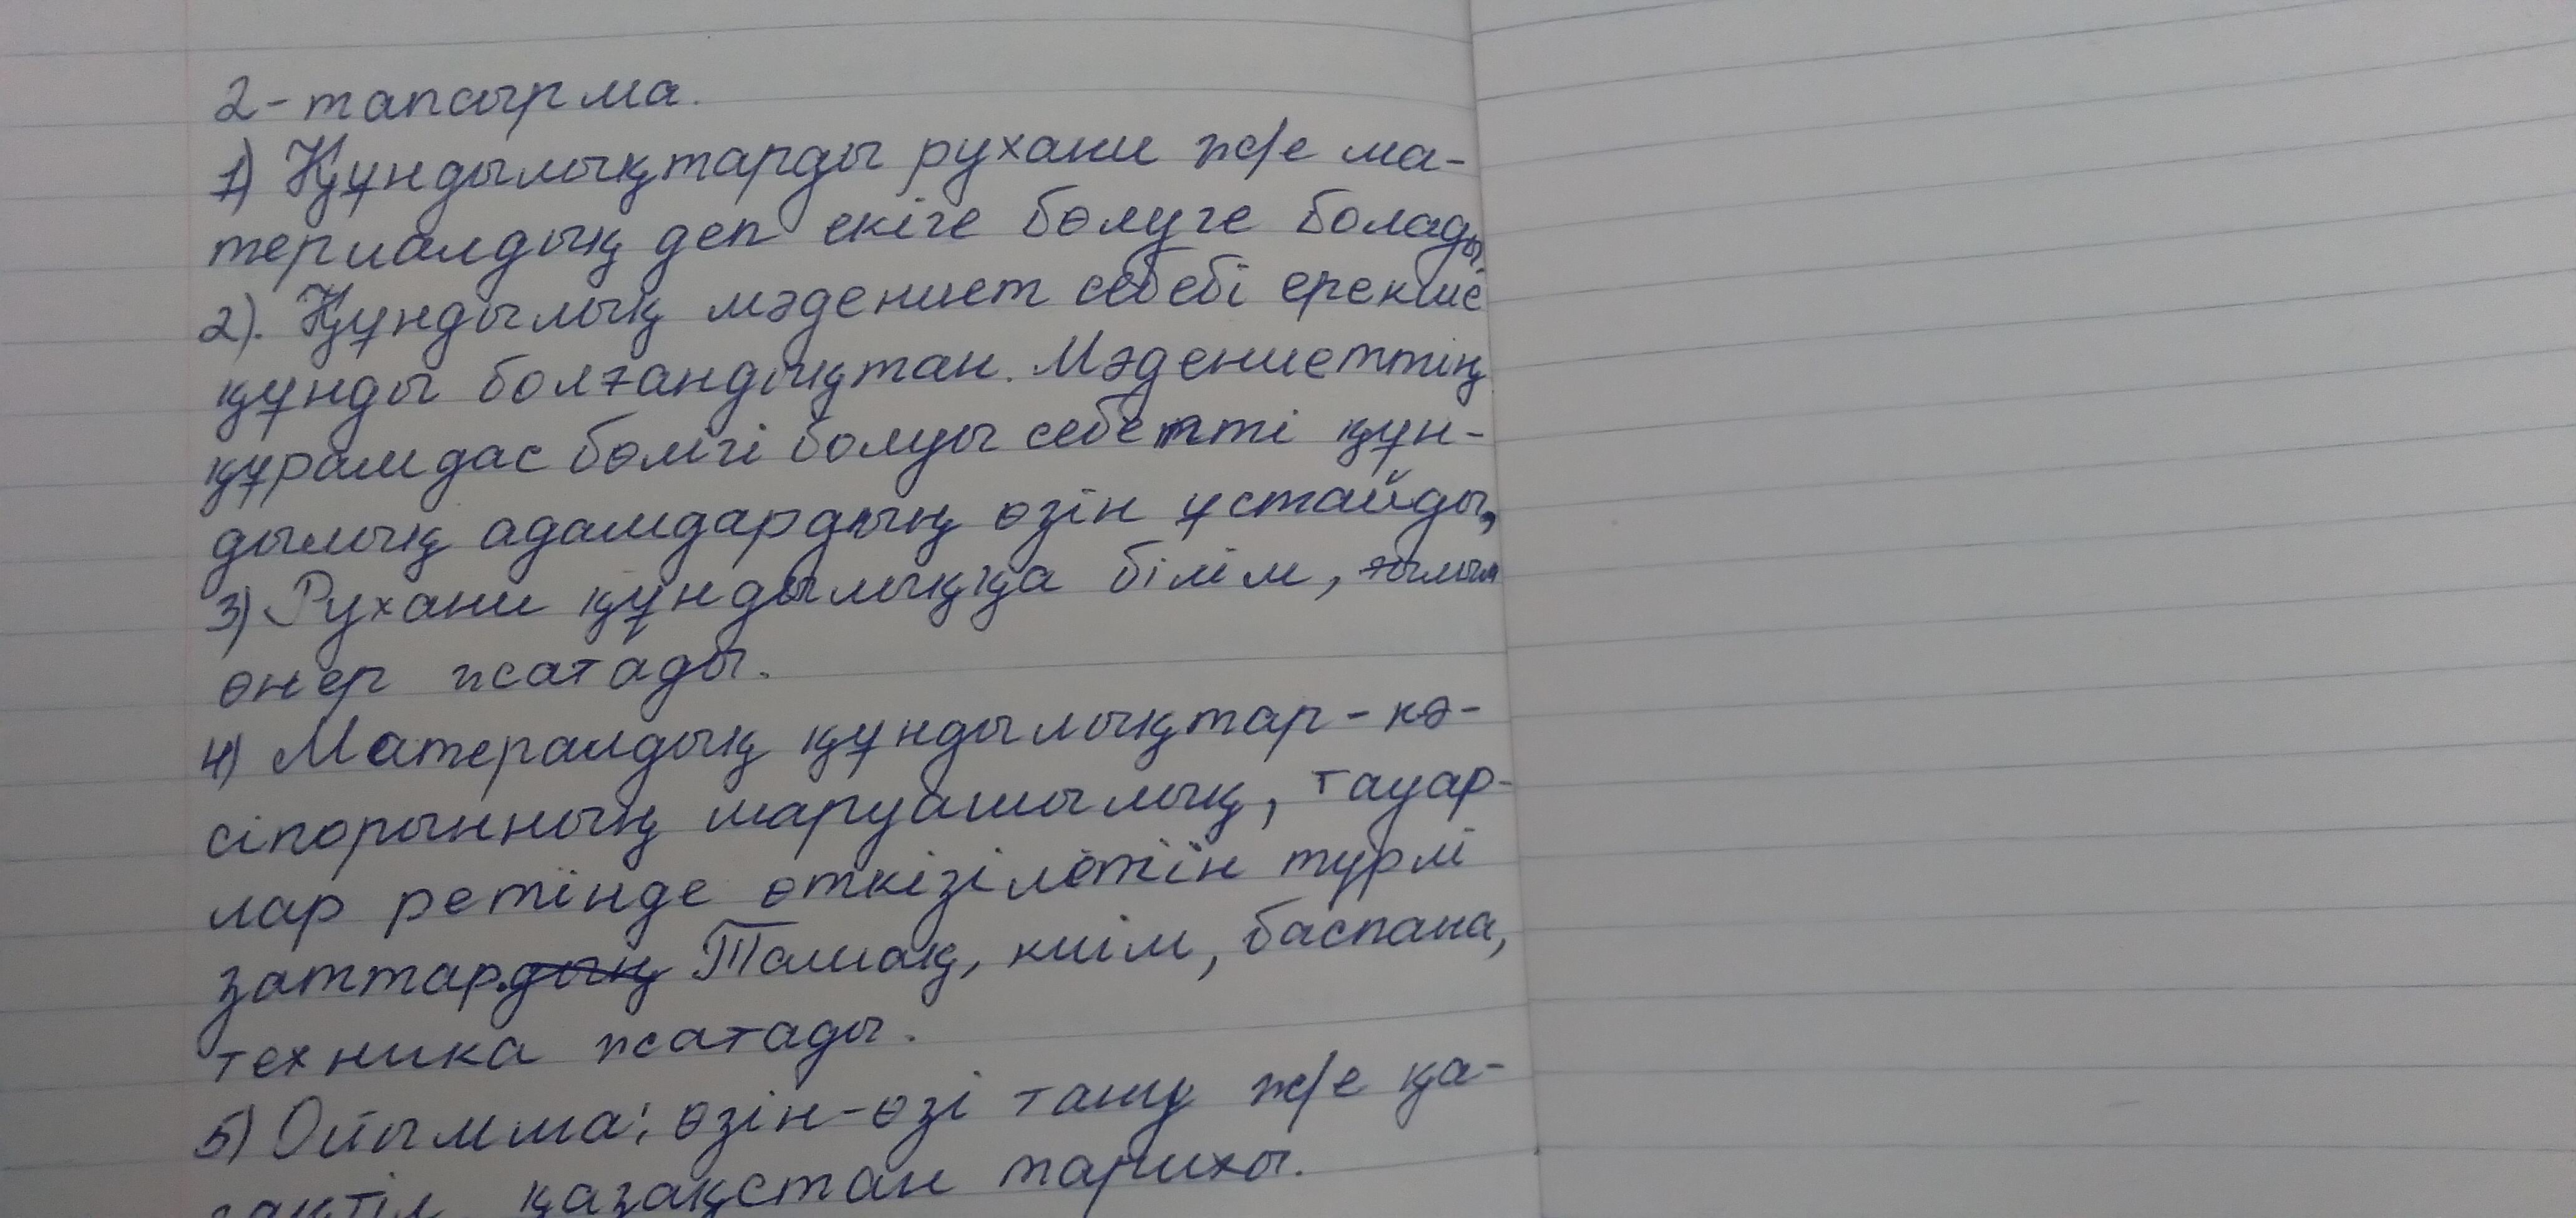 2-тапсырма.
1) Құндылықтарды рухани ж/е ма-
териалдық деп екіге бөлуге болады.
2). Құндылық мәдениет себебі ерекше
құнды болғандықтан. Мәдениеттің
құрамдас бөлігі болуы себепті құн-
дылық адамдардың өзін ұстайды,
3) Рухани құндылыққа білім, ғылым
өнер жатады.
4) Матералдық құндылықтар - кә-
сіпорынның шаруашылық, тауар-
лар ретінде өткізілетін түрлі
заттар. Тамақ, киім, баспана,
техника жатады.
5) Ойымша: өзін-өзі тану ж/е қа-
зақтіл қазақстан тарихы.